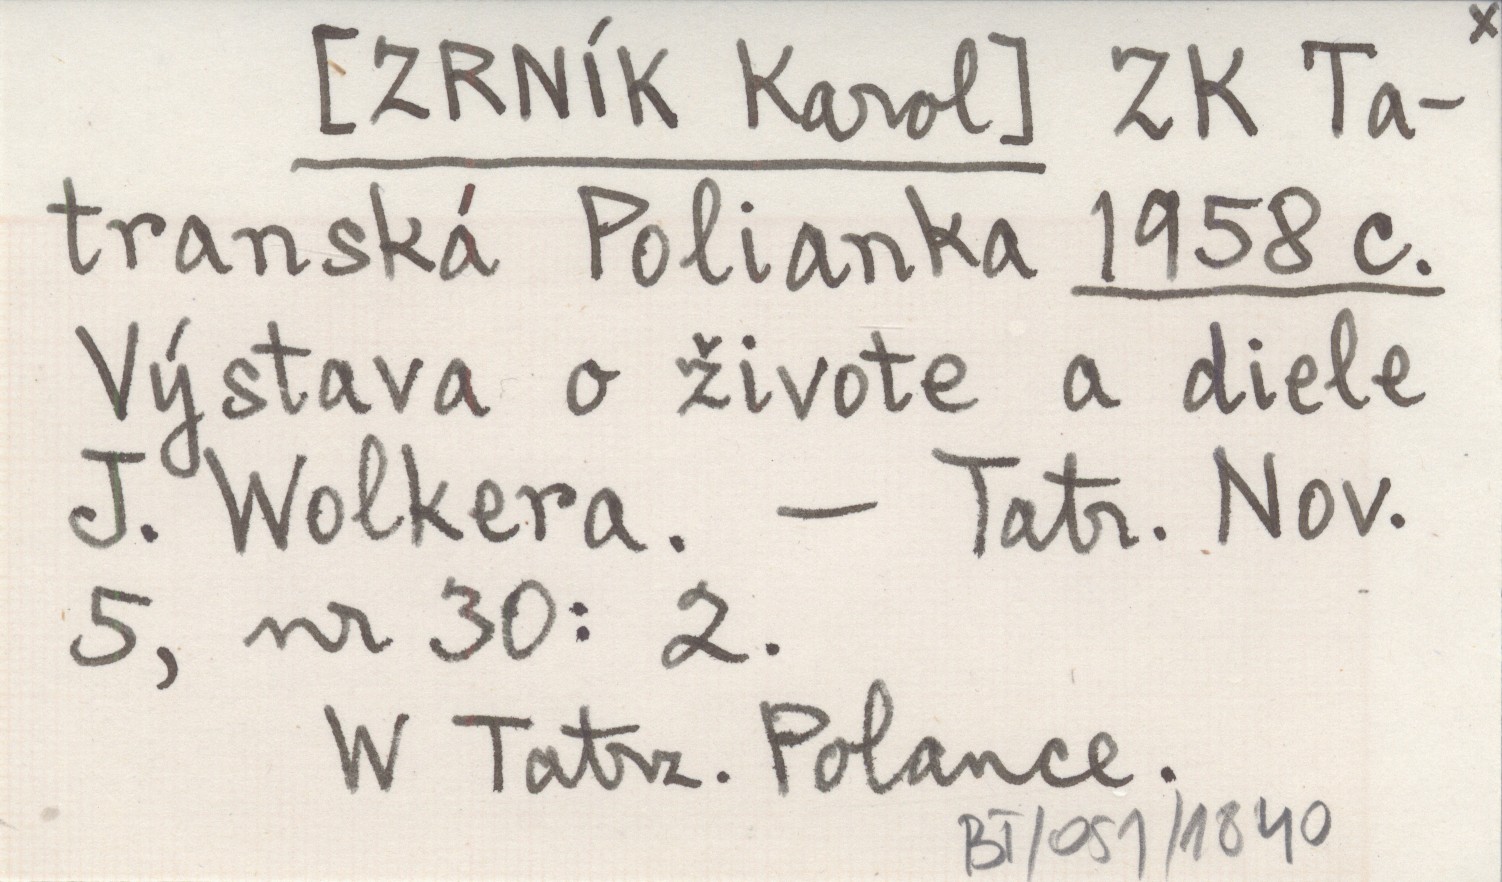 x
[ZRNÍK Karol] ZK Ta-
transká Polianka 1958 c.
Výstava o živote a diele
J. Wolkera. — Tatr. Nov.
5, nr 30: 2.
W Tatrz. Polance.
BT/051/1840